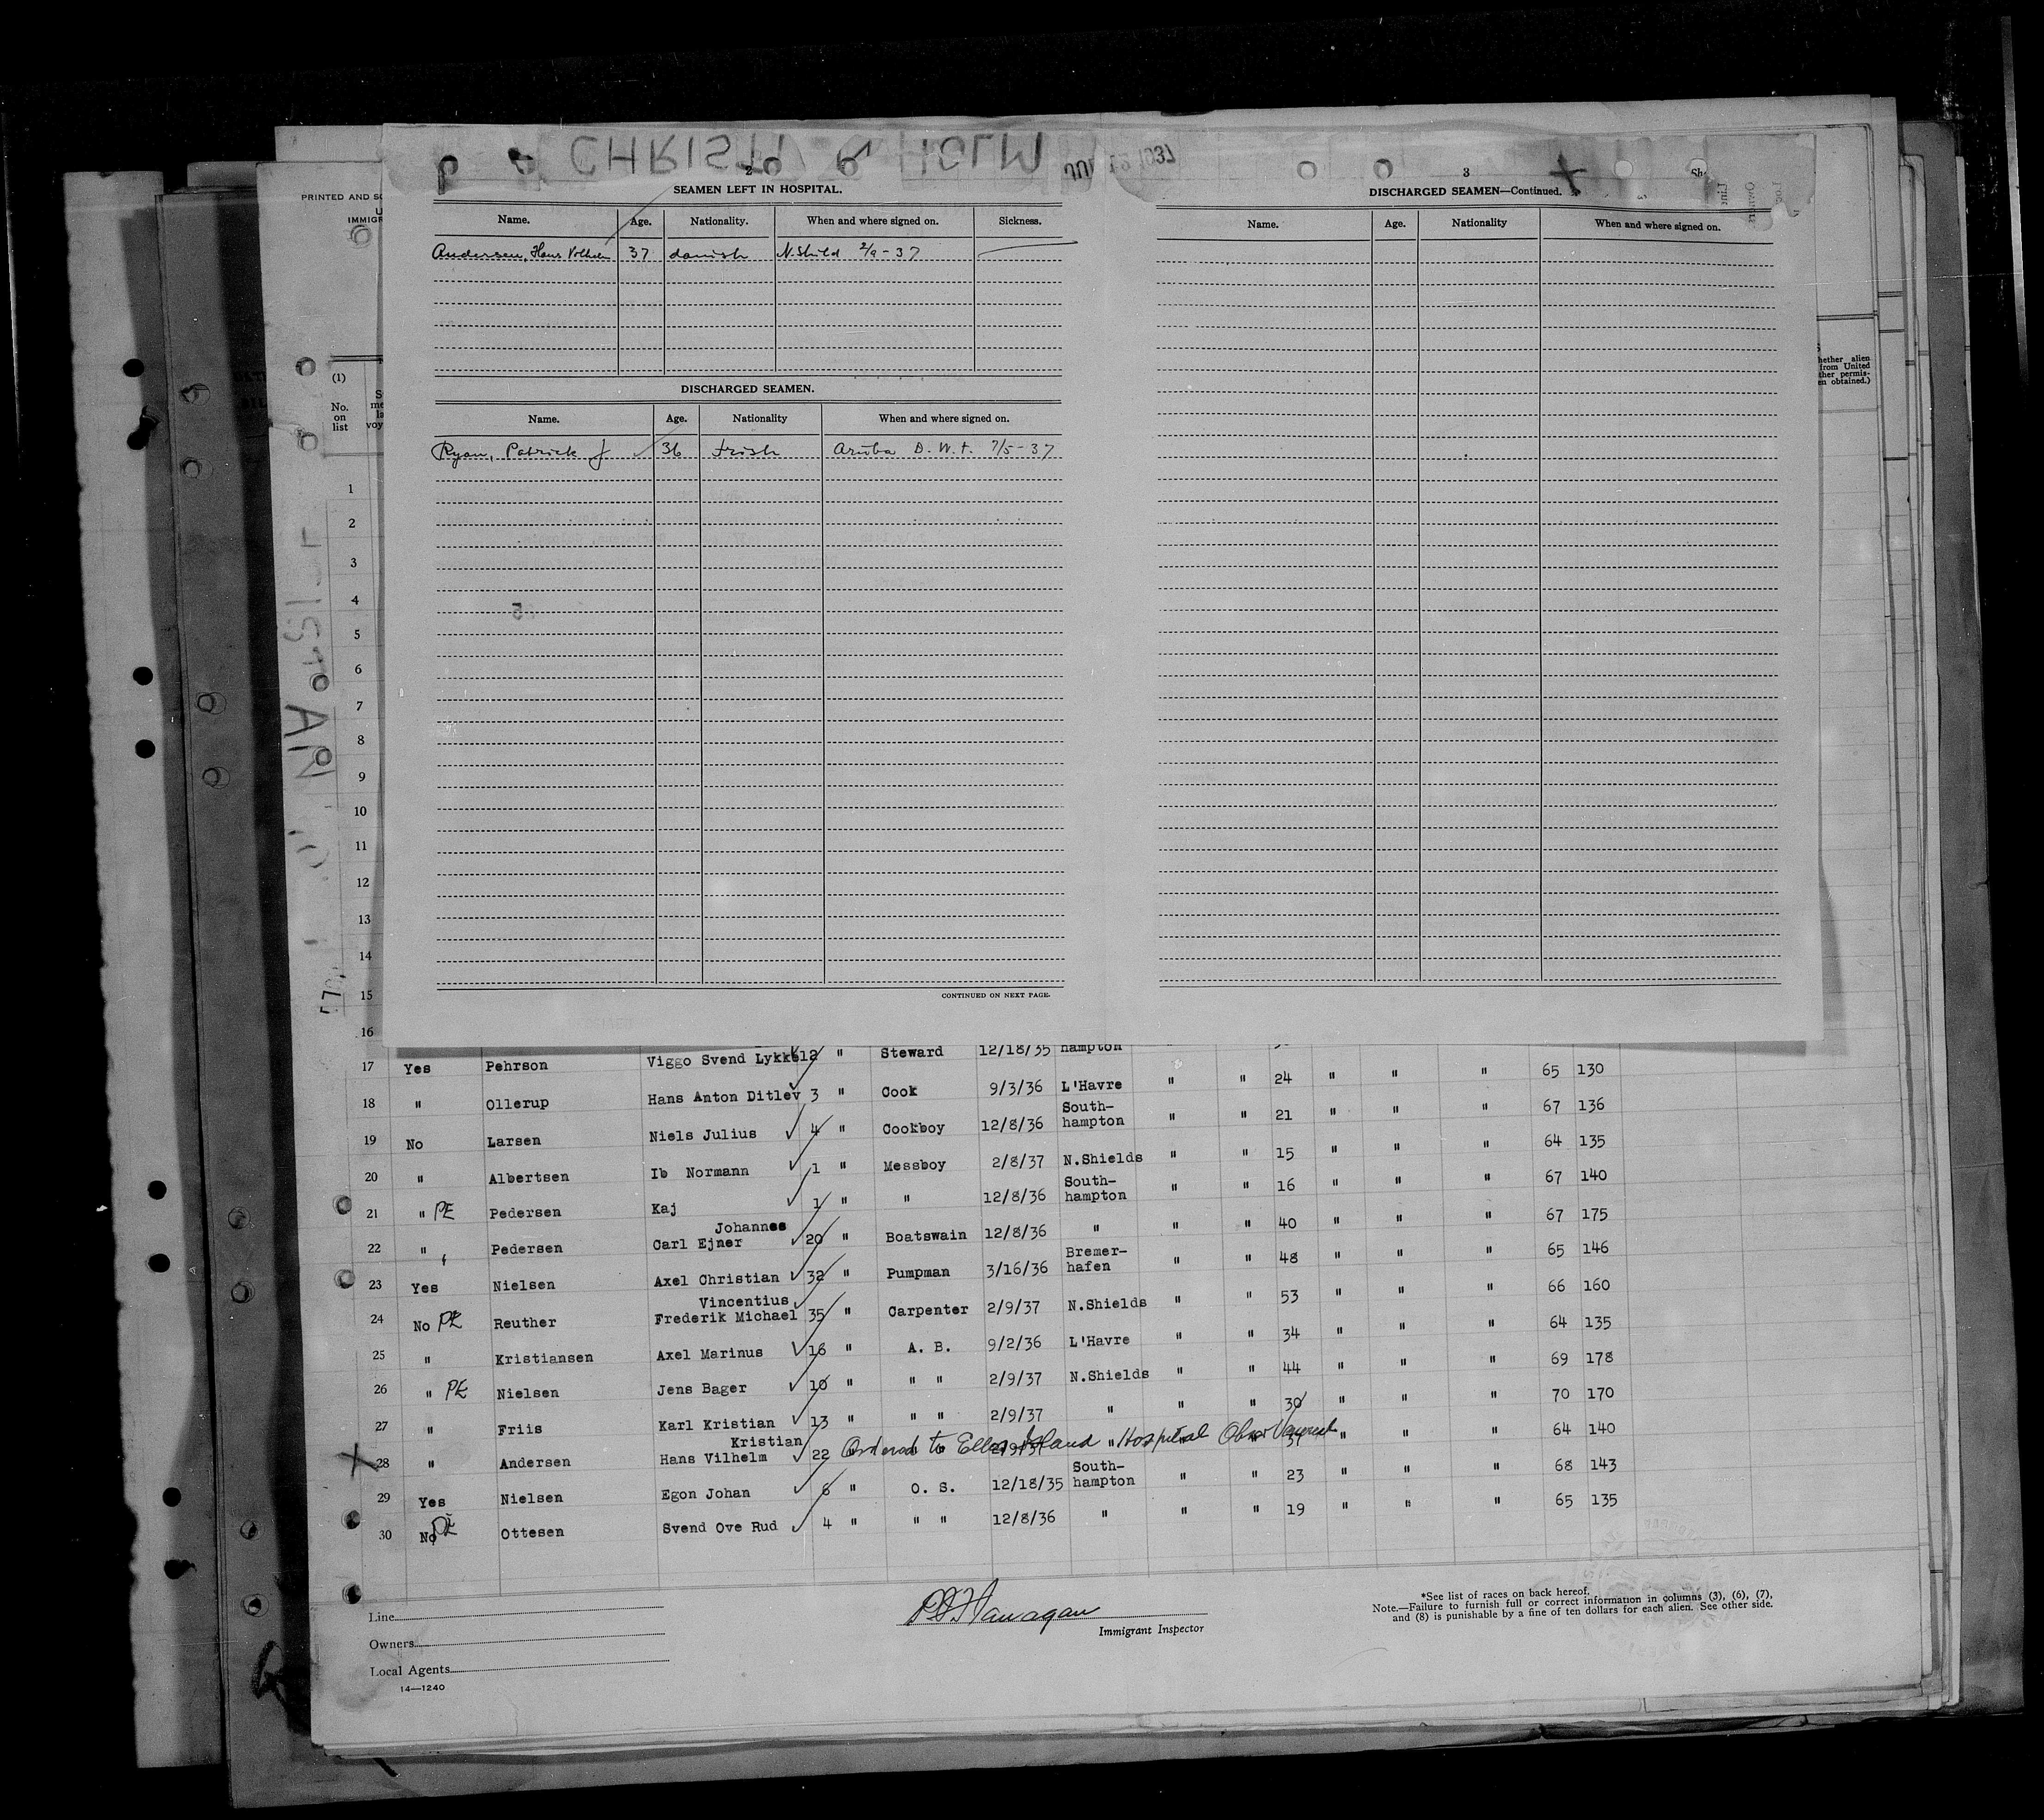 CHRIST HOLM
PRINTED AND
IMMIGR
2
SEAMEN LEFT IN HOSPITAL.
Name. Age. Nationality. When and where signed on. Sickness.
Andersen, Hans Vilhelm 37 danish N. Shild 2/9-37
DISCHARGED SEAMEN.
Name. Age. Nationality When and where signed on.
Ryan, Patrick J 36 Irish Aruba D. W. I. 7/5-37
CONTINUED ON NEXT PAGE.
3
DISCHARGED SEAMEN—Continued.
Name. Age. Nationality When and where signed on.
hether alien
from United
ther permis-
en obtained.)
(1)
No.
on
list
1
2
3
4
5
6
7
8
9
10
11
12
13
14
15
16
17 Yes Pehrson Viggo Svend Lykke 12 " Steward 12/18/35 hampton
18 " Ollerup Hans Anton Ditlev 3 " Cook 9/3/36 L'Havre " " 24 " " " 65 130
19 No Larsen Niels Julius 4 " Cookboy 12/8/36 South-hampton " " 21 " " " 67 136
20 " Albertsen Ib Normann 1 " Messboy 2/8/37 N.Shields " " 15 " " " 64 135
21 " PE Pedersen Kaj 1 " " 12/8/36 South-hampton " " 16 " " " 67 140
22 " Pedersen Johannes Carl Ejner 20 " Boatswain 12/8/36 " " " 40 " " " 67 175
23 Yes Nielsen Axel Christian 32 " Pumpman 3/16/36 Bremer-hafen " " 48 " " " 65 146
24 No PE Reuther Vincentius Frederik Michael 35 " Carpenter 2/9/37 N.Shields " " 53 " " " 66 160
25 " Kristiansen Axel Marinus 16 " A. B. 9/2/36 L'Havre " " 34 " " " 64 135
26 " PE Nielsen Jens Bager 10 " " " 2/9/37 N.Shields " " 44 " " " 69 178
27 " Friis Karl Kristian 13 " " " 2/9/37 " " " 30 " " " 70 170
28 " Andersen Kristian Hans Vilhelm 22 Ordered to Ellis Island Hospital " 37 " " " 64 140
29 Yes Nielsen Egon Johan 6 " O. S. 12/18/35 South-hampton " " 23 " " " 68 143
30 No PE Ottesen Svend Ove Rud 4 " " " 12/8/36 " " " 19 " " " 65 135
Line
Owners
Local Agents
14—1240
Immigrant Inspector
*See list of races on back hereof.
Note.—Failure to furnish full or correct information in columns (3), (6), (7),
and (8) is punishable by a fine of ten dollars for each alien. See other side.